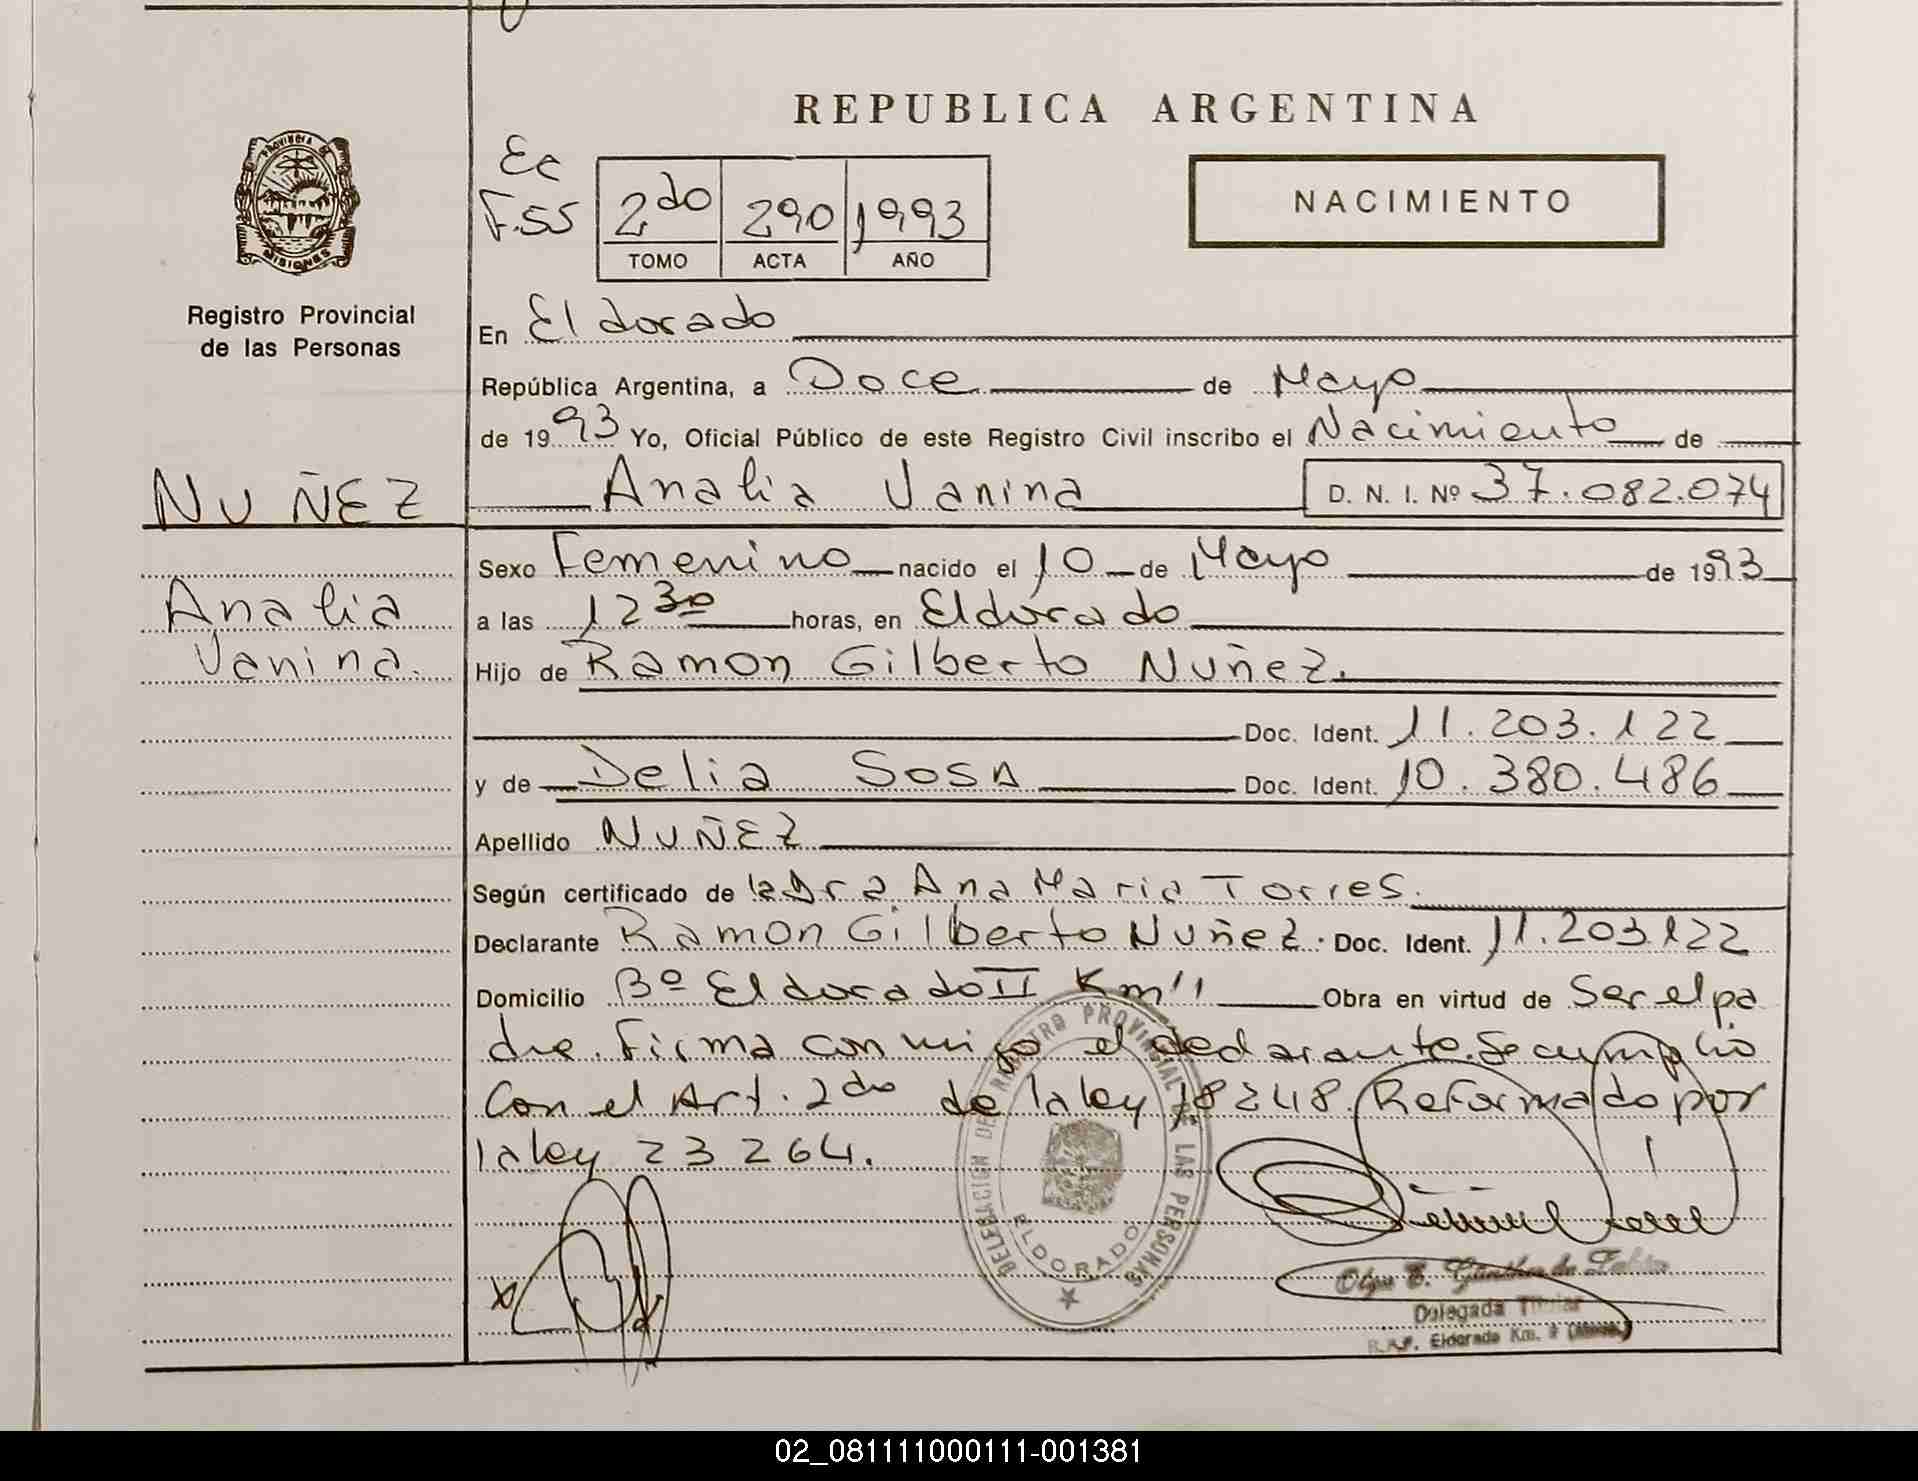 REPUBLICA ARGENTINA
PROVINCIA DE
MISIONES
Registro Provincial
de las Personas
Ec
F.55
2do 290 1993
TOMO ACTA AÑO
NACIMIENTO
En Eldorado
República Argentina, a Doce de Mayo
de 1993 Yo, Oficial Público de este Registro Civil inscribo el Nacimiento de
Analia Vanina D. N. I. Nº 37.082.074
NUÑEZ
Analia
Vanina.
Sexo Femenino nacido el 10 de Mayo de 1993
a las 12 30 horas, en Eldorado
Hijo de Ramon Gilberto Nuñez.
Doc. Ident. 11.203.122
y de Delia Sosa Doc. Ident. 10.380.486
Apellido NUÑEZ
Según certificado de la Dra Ana Maria Torres.
Declarante Ramon Gilberto Nuñez. Doc. Ident. 11.203.122
Domicilio Bº Eldorado II Km 11 Obra en virtud de Ser el pa
dre. Firma conmigo el declarante. Se cumplio
Con el Art. 2do de la ley 18248 Reformado por
la ley 23264.
DELEGACION DE REGISTRO PROVINCIAL DE LAS PERSONAS
ELDORADO
x
Olga E. Günther de
Delegada Titular
Eldorado Km. 9 (Mnes.)
02_081111000111-001381